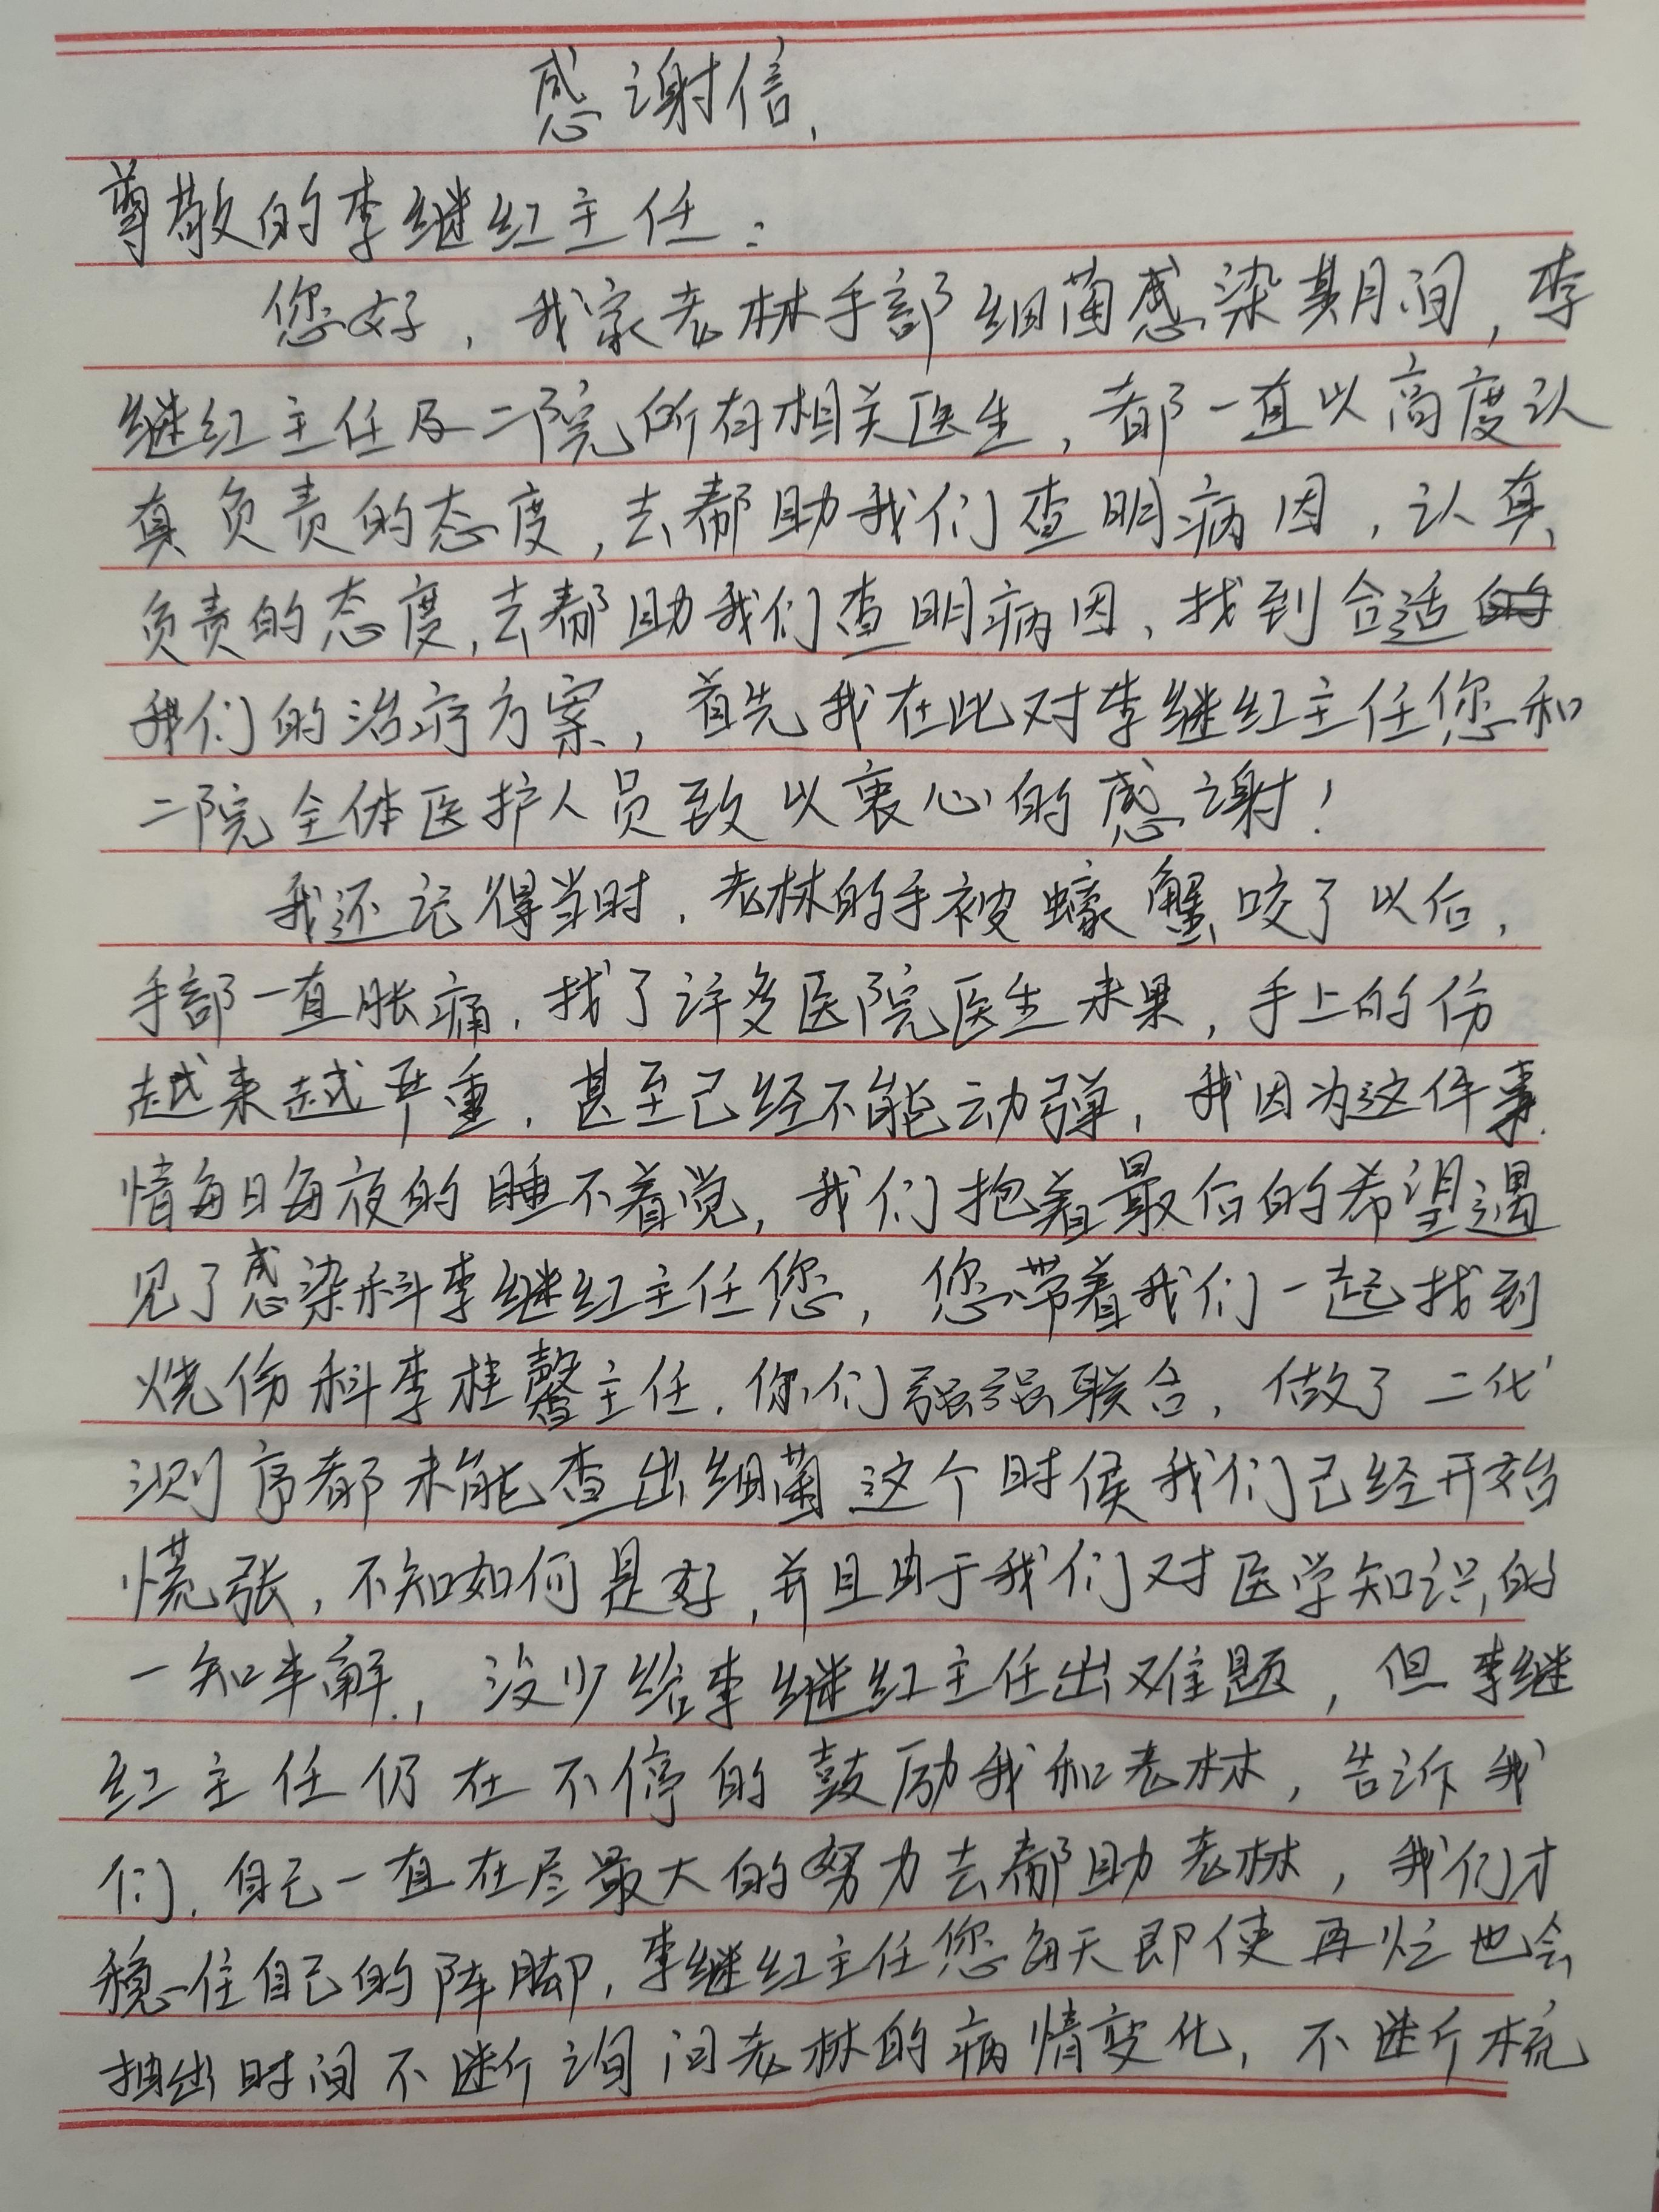 感谢信
尊敬的李继红主任:
您好,我家老林手部细菌感染其月间,李
继红主任及二院所有相关医生,都一直以高度认
真负责的态度,去帮助我们查明病因,认真
负责的态度,去帮助我们查明病因、找到合适的
我们的治疗方案,首先我在此对李继红主任您和
二院全体医护人员致以衷心的感谢!
我还记得当时,老林的手被蠔蟹咬了以后,
手部一直胀痛,找了许多医院医生未果,手上的伤
越来越严重,甚至已经不能动弹,我因为这件事
情每日每夜的睡不着觉,我们抱着最后的希望遇
见了感染科李继红主任您,您带着我们一起找到
烧伤科李桂馨主任,你们强强联合,做了二代
测序都未能查出细菌这个时候我们已经开始
慌张,不知如何是好,并且由于我们对医学知识的
一知半解,没少给李继红主任出难题,但李继
红主任仍在不停的鼓励我和老林,告诉我
们,自己一直在尽最大的努力去帮助老林,我们才
稳住自己的阵脚,李继红主任您每天即使再忙也会
抽出时间不断询问老林的病情变化,不断梳